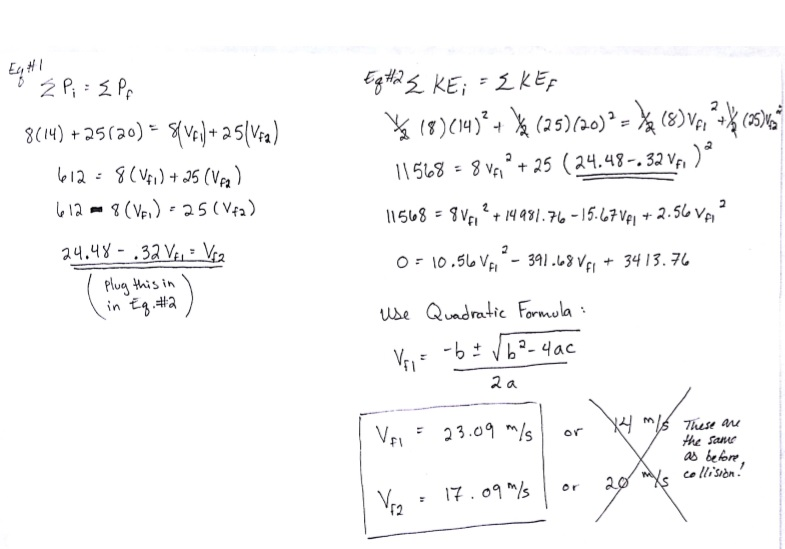 Eq #1
Σ Pi = Σ Pf
8(14) + 25(20) = 8(Vf1) + 25(Vf2)
612 = 8(Vf1) + 25(Vf2)
612 - 8(Vf1) = 25(Vf2)
24.48 - .32 Vf1 = Vf2
(Plug this in
in Eq. #2)
Eq #2 Σ KEi = Σ KEF
1/2 (8)(14)² + 1/2 (25)(20)² = 1/2 (8) Vf1² + 1/2 (25) Vf2²
11568 = 8 Vf1² + 25 (24.48 - .32 Vf1)²
11568 = 8 Vf1² + 14981.76 - 15.67 Vf1 + 2.56 Vf1²
0 = 10.56 Vf1² - 391.68 Vf1 + 3413.76
Use Quadratic Formula :
Vf1 = -b ± √b² - 4ac
2a
Vf1 = 23.09 m/s or 14 m/s
Vf2 = 17.09 m/s or 20 m/s
These are
the same
as before
collision!